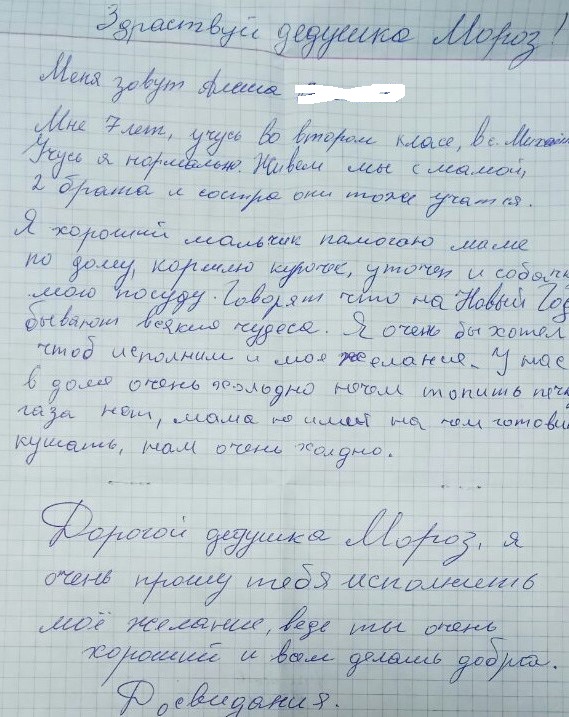 Здраствуй дедушка Мороз!
Меня зовут Алеша
Мне 7 лет, учусь во втором класе, в с.
Учусь я нормально. Живем мы с мамой,
2 брата и состра они тоже учатся.
Я хороший мальчик памогаю маме
по дому, кормлю курочек, уточек и
мою посуду. Говорят что на Новый Год
бывают всякие чудеса. Я очень бы хотел
чтоб исполнили и мое желания. У нас
в доме очень холодно нечем топить
газа нет, мама не имеет на чем
кушать, нам очень холдно.
Дорогой дедушка Мороз, я
очень прошу тебя исполнить
моё желание, веде ты очень
хороший и всем делаешь добра.
Досвидания.